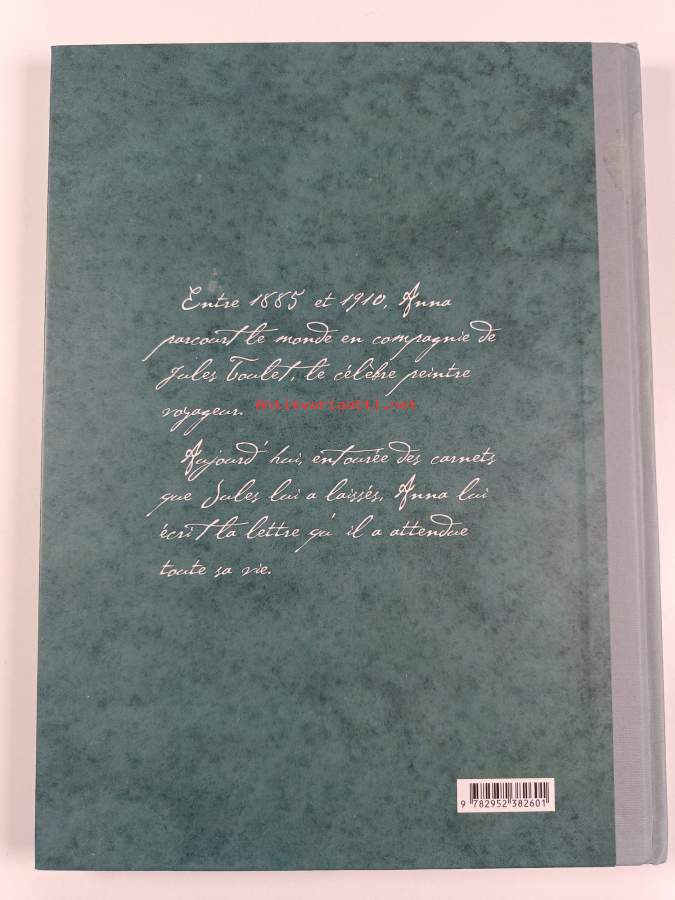 Entre 1885 et 1910, Anna
parcourt le monde en compagnie de
Jules Toulet, le célèbre peintre
voyageur.
Antikvariaatti.net
Aujourd'hui, entourée des carnets
que Jules lui a laissés, Anna lui
écrit la lettre qu'il a attendue
toute sa vie.
9 782952 382601